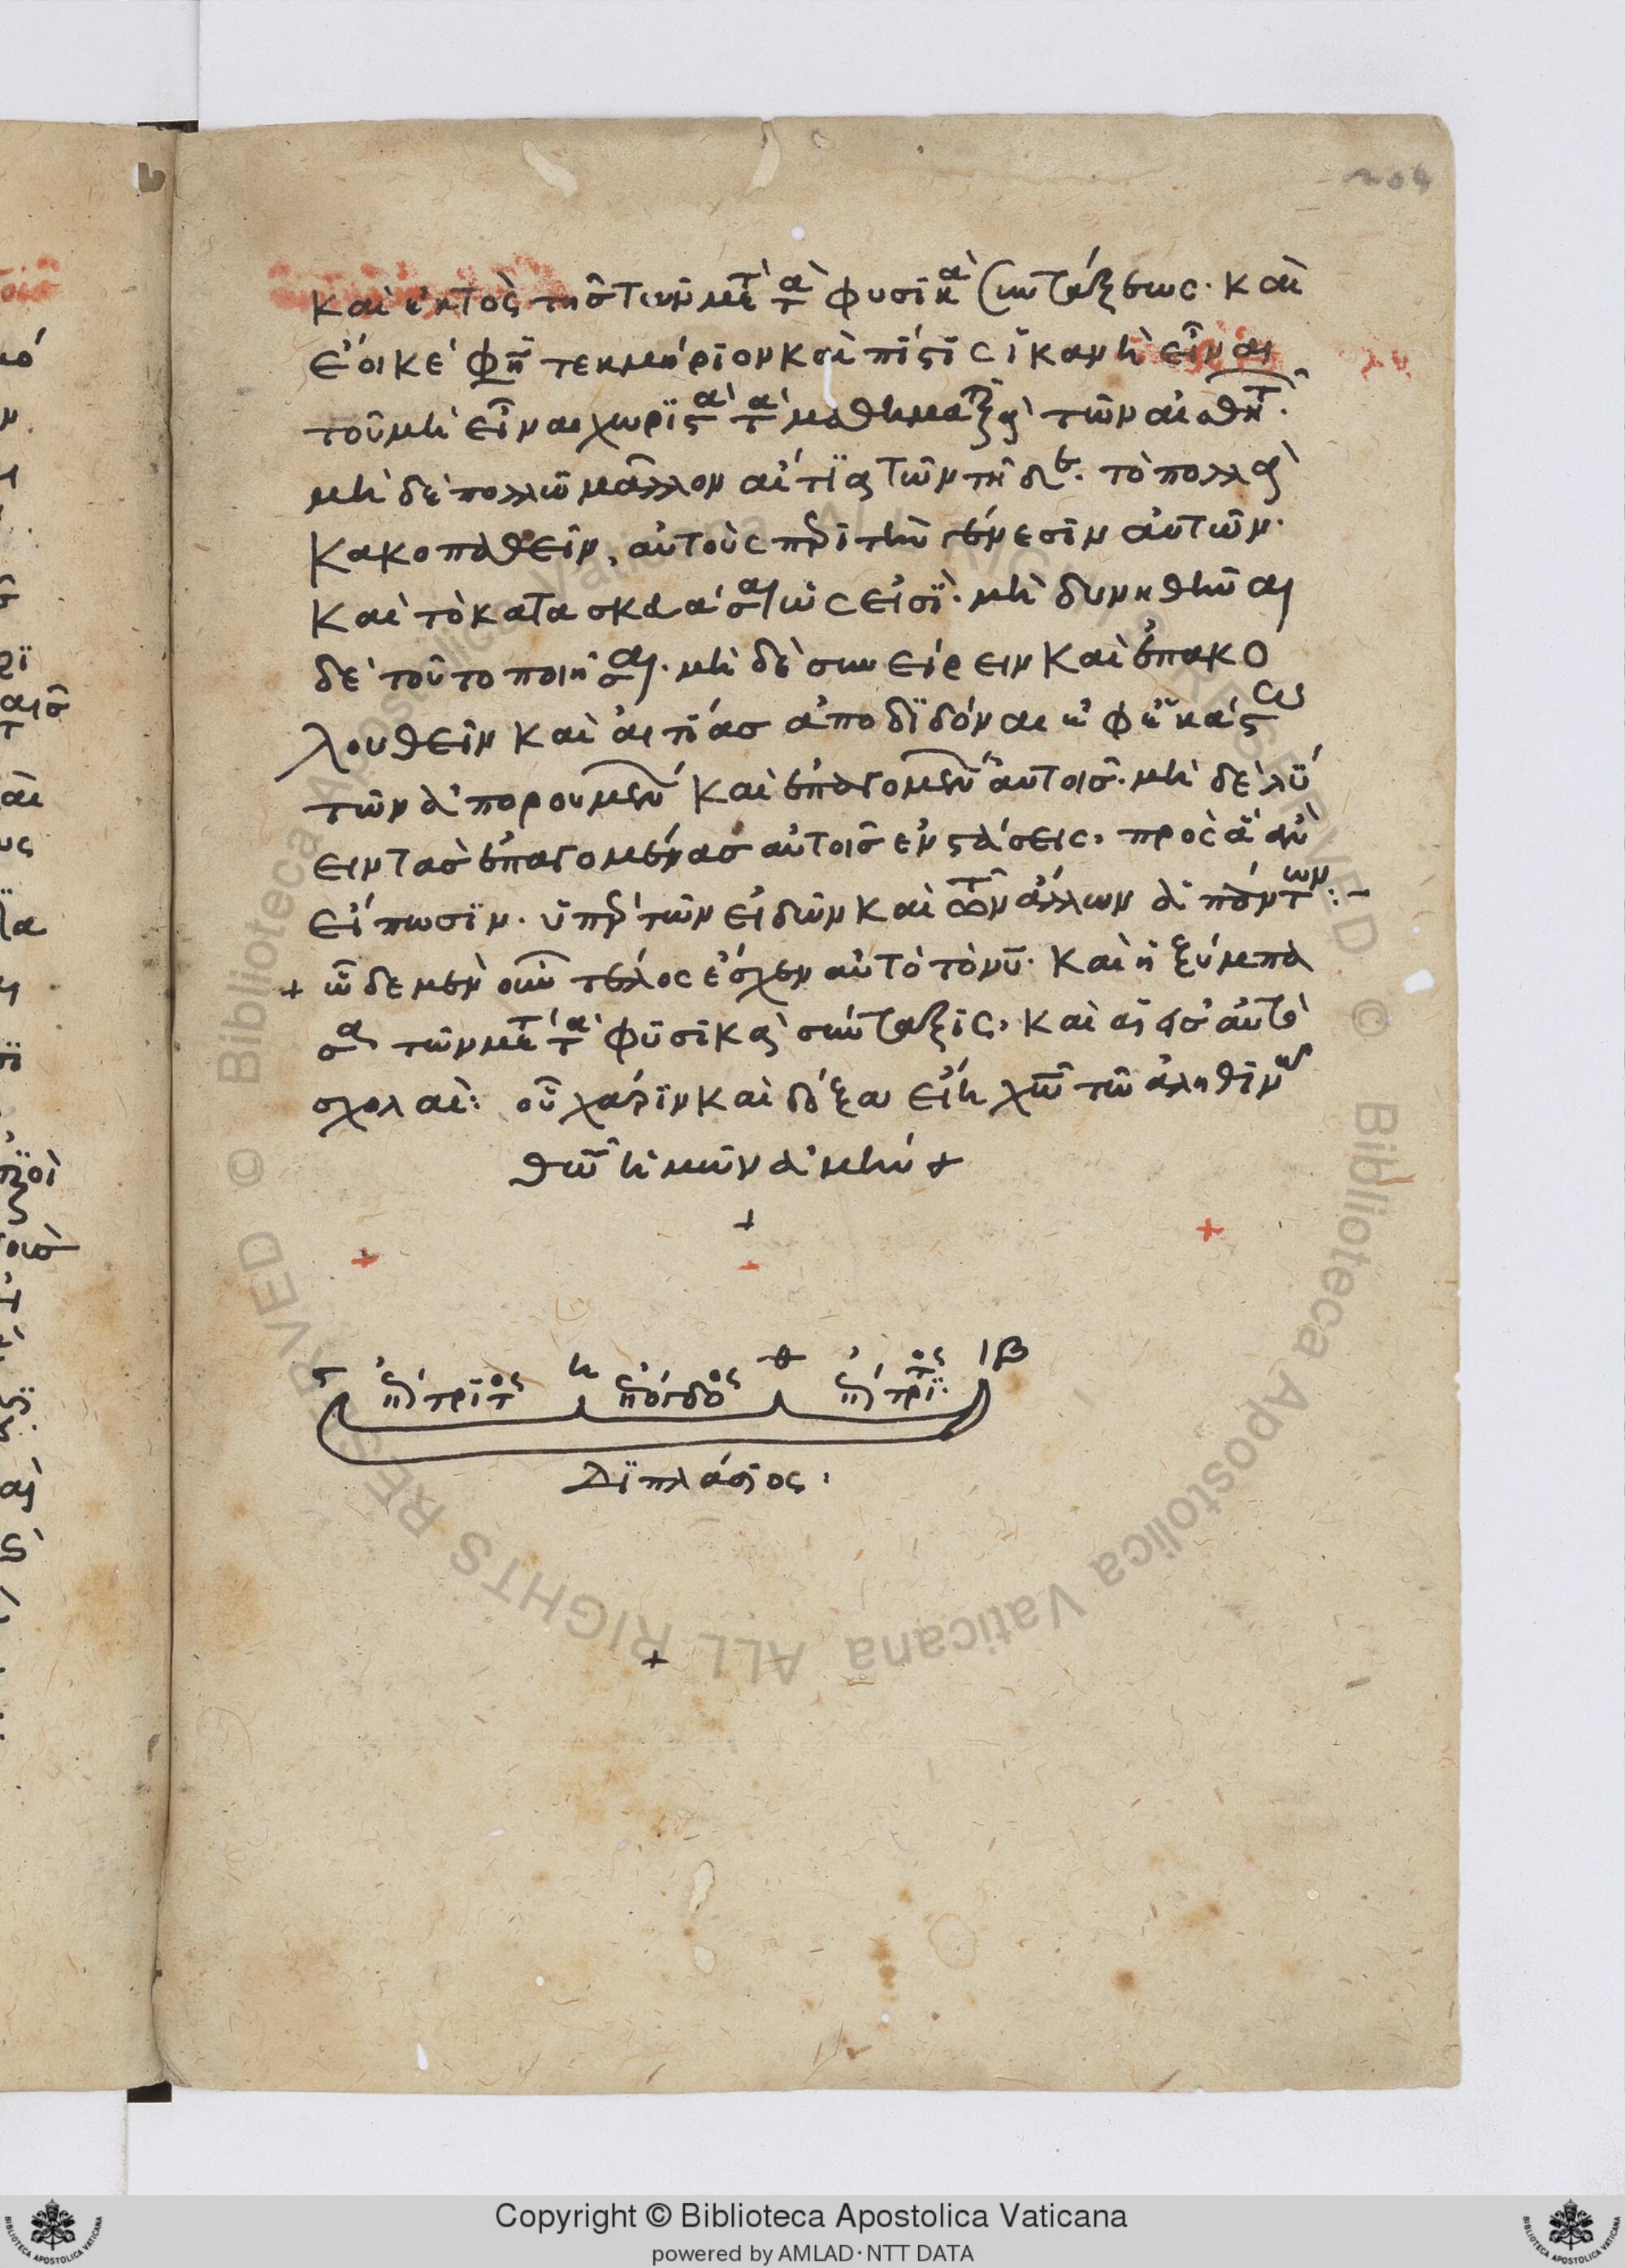 204
καὶ ἐκτὸς τῆς τῶν μετὰ τὰ φυσικὰ συντάξεως. καὶ
ἔοικέ φησι τεκμήριον καὶ πίστις ἱκανὴ εἶναι
τοῦ μὴ εἶναι χωριστὰ τὰ μαθηματικὰ τῶν αἰσθητῶν.
μὴ δὲ πολλῶ μᾶλλον αἰτίας τῶν τῆδε. τὸ πολλὰ
κακοπαθεῖν, αὐτοὺς περὶ τὴν γένεσιν αὐτῶν.
καὶ τὸ κατασκευάσαι ὡς εἰσὶ. μὴ δυνηθῆναι
δὲ τοῦτο ποιῆσαι. μὴ δὲ συνείρειν καὶ ἐπακο
λουθεῖν καὶ αἰτίας ἀποδιδόναι ἐφ' ἑκάστω
τῶν ἀπορουμένων καὶ ἐπαγομένων αὐτοῖς. μὴ δὲ λύ
ειν τὰς ἐπαγομένας αὐτοῖς ἐνστάσεις, πρὸς ἃ ἂν
εἴπωσιν. ὑπὲρ τῶν εἰδῶν καὶ τῶν ἄλλων ἁπάντων:-
+ ὧδε μὲν οὖν τέλος ἔσχεν αὐτὸ τὸ νῦ. καὶ ἡ ξύμπα
σα τῶν μετὰ τὰ φυσικὰ σύνταξις, καὶ αἱ εἰς αὐτὰ
σχολαί: οὗ χάριν καὶ δόξα εἴη χω τῶ ἀληθινῶ
θω ἡμῶν ἀμήν +
+
+ + +
ς ἐπίτριτος η ἐπόγδοος θ ἐπίτριτος ιβ
Διπλάσιος:
+
Copyright © Biblioteca Apostolica Vaticana
powered by AMLAD·NTT DATA